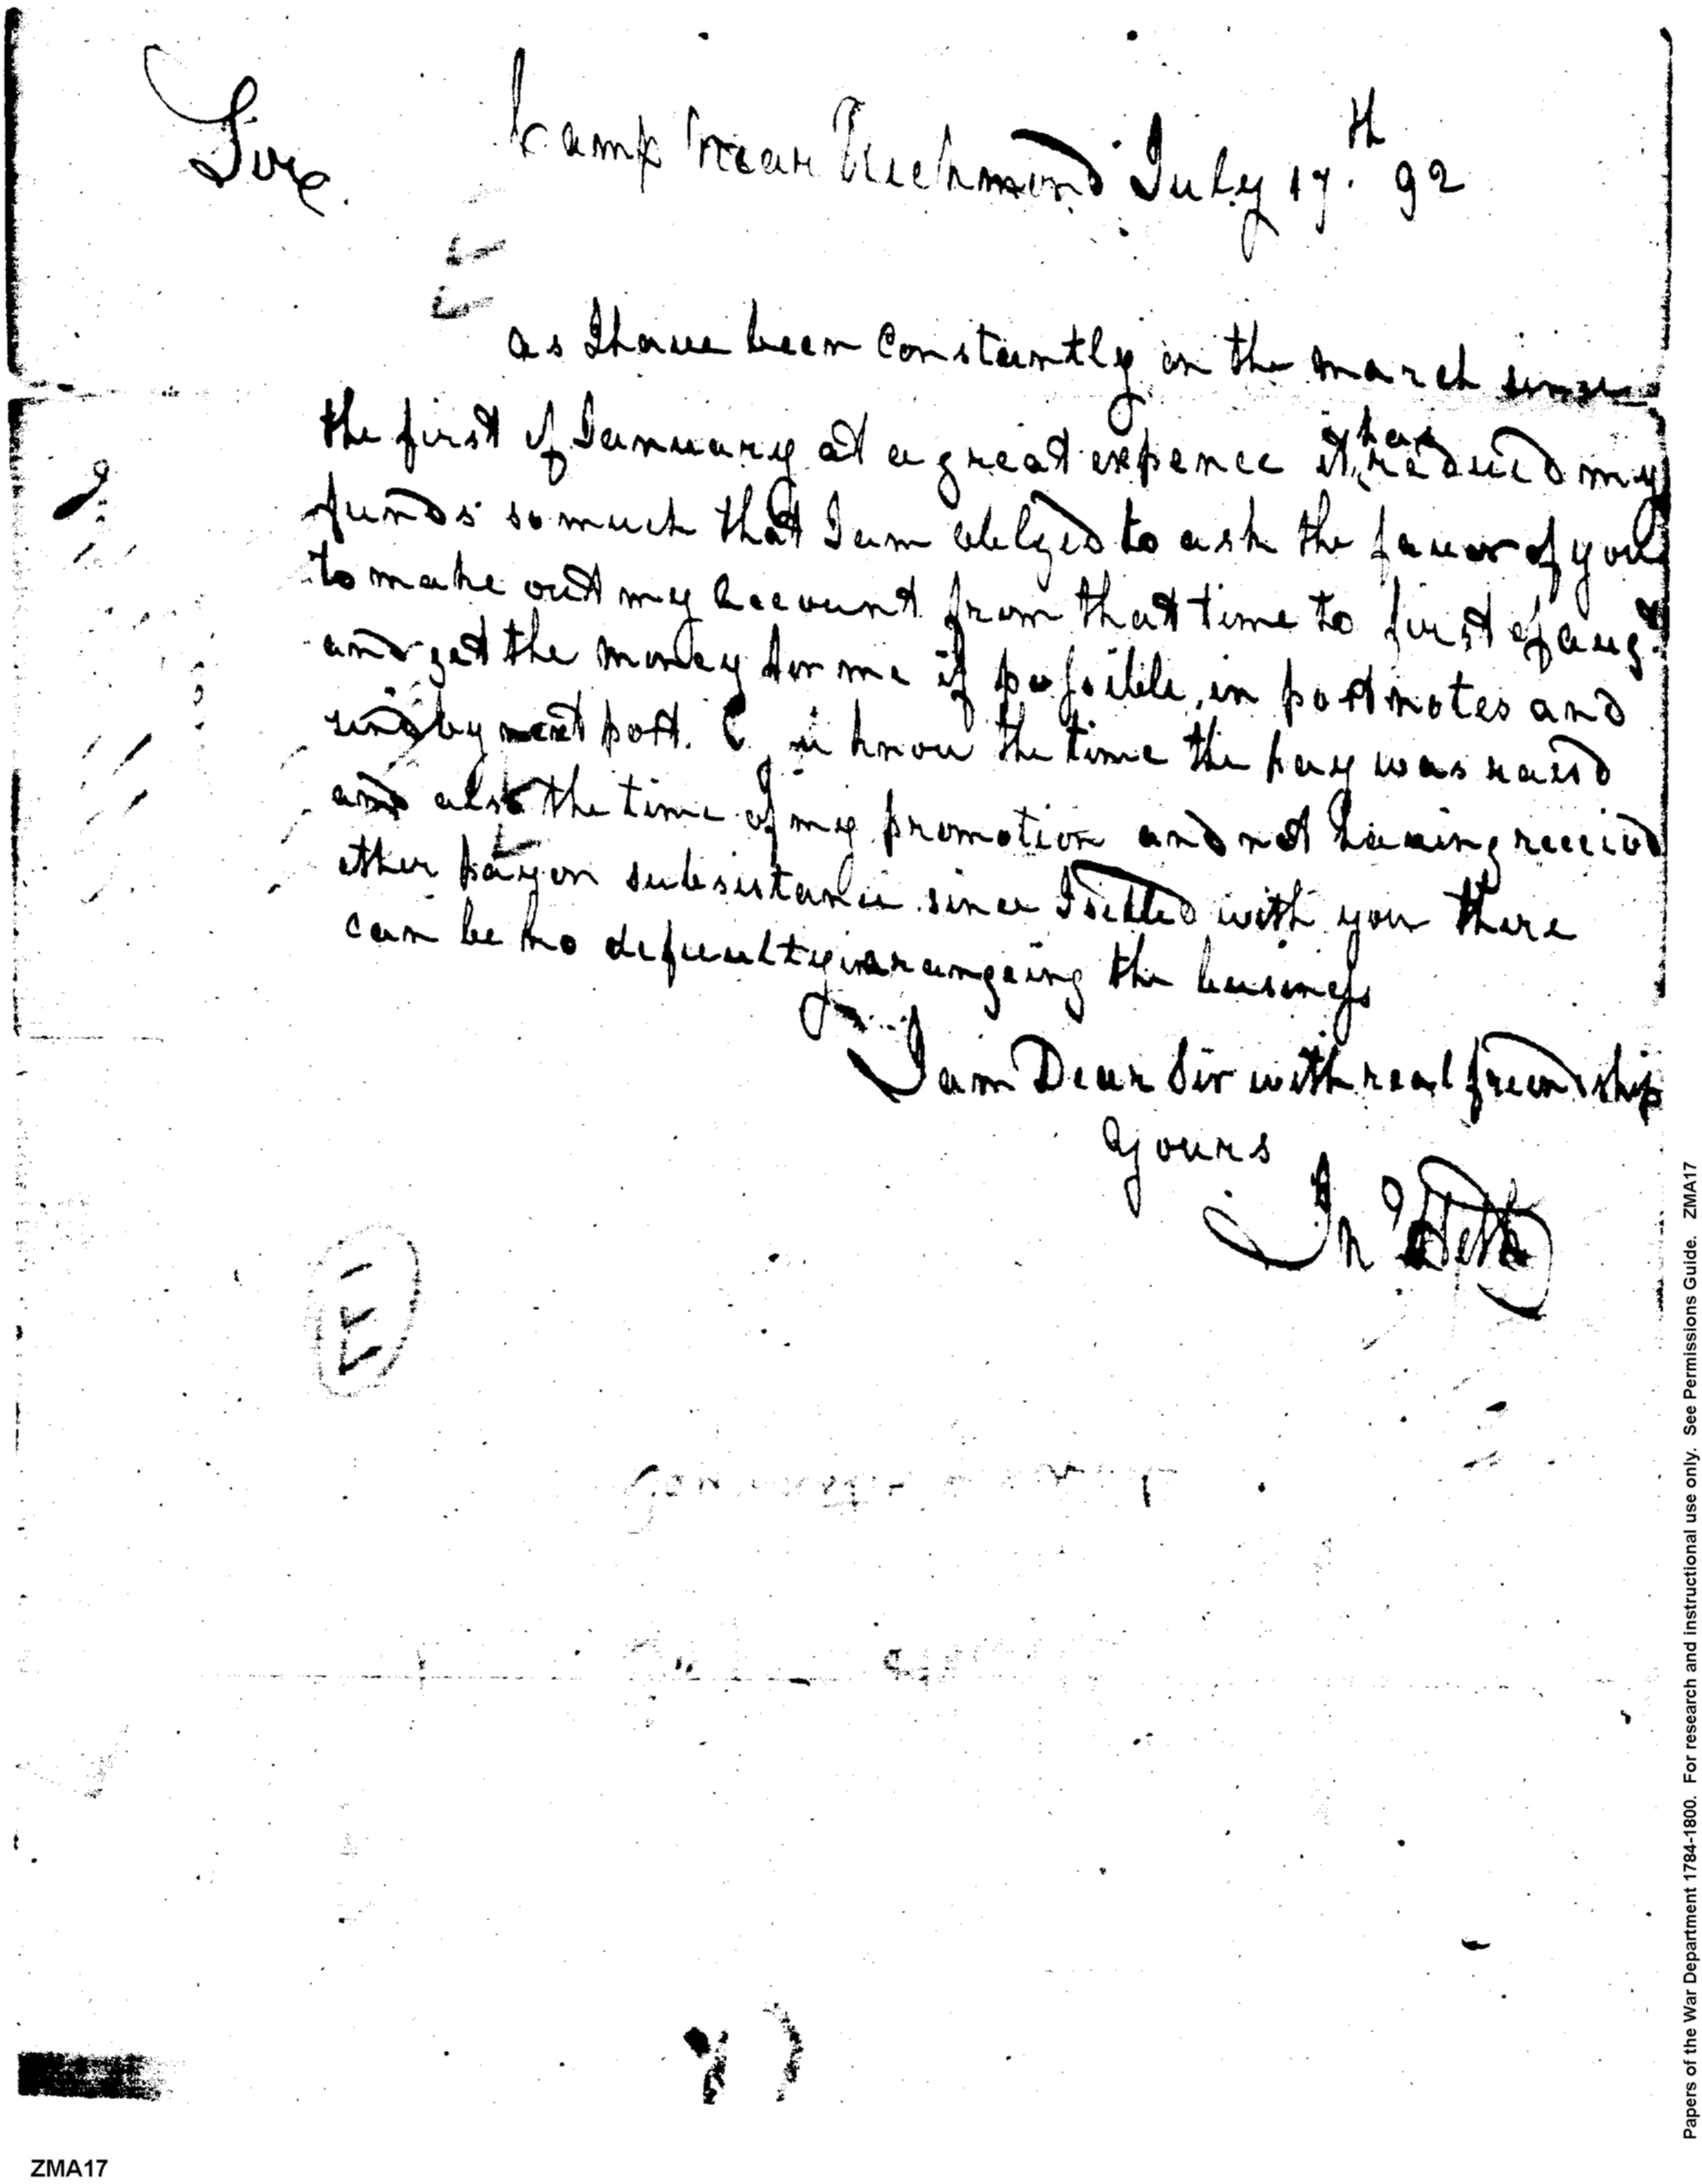 Sir.
Camp near Richmond July 17.th 92
as I have been Constantly on the march sinse
the first of January at a great expence it has redused my
funds so much that I am obliged to ask the favor of you
to make out my account from that time to first of aug.t
and get the money for me if possible, in post notes and
by next post. know the time the pay was raisd
and also the time of my promotion and not having receivd
ether pay or subsistance since I settled with you there
can be no defuculty in arangeing the business
I am Dear Sir with real freindship
yours
Jn Heth
E
Papers of the War Department 1784-1800. For research and instructional use only. See Permissions Guide. ZMA17
ZMA17